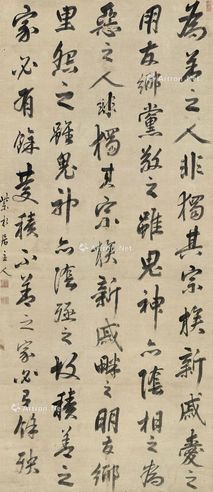 為善之人非獨其宗族親戚愛之
朋友鄉黨敬之雖鬼神亦陰相之為
惡之人非獨其宗族親戚畔之朋友鄉
里怨之雖鬼神亦陰殛之故積善之
家必有餘慶積不善之家必有餘殃
居主人
Artron.Net